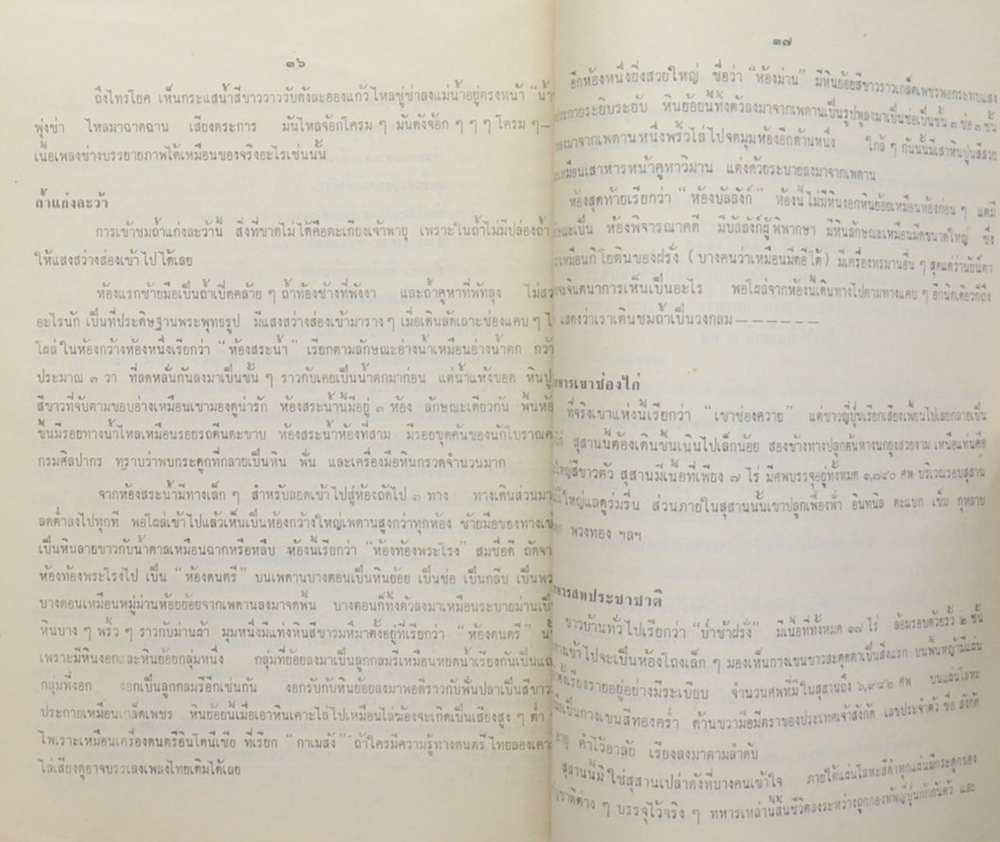 ๓๖
ถึงไทรโยค เห็นกระแสน้ำสีขาววาววับดังละอองแก้วไหลซู่ซ่าลงแม่น้ำอยู่ตรงหน้า "น้ำ
พุ่งซ่า ไหลมาฉาดฉาน เสียงตระการ มันไหลจ๊อกโครม ๆ มันดังจ๊อก ๆ ๆ ๆ โครม ๆ—
เนื้อเพลงช่างบรรยายภาพได้เหมือนของจริงอะไรเช่นนั้น
ถ้ำแก่งละว้า
การเข้าชมถ้ำแก่งละว้านี้ สิ่งที่ขาดไม่ได้คือตะเกียงเจ้าพายุ เพราะในถ้ำไม่มีปล่องถ้ำ
ให้แสงสว่างส่องเข้าไปได้เลย
ห้องแรกซ้ายมือเป็นถ้ำเปิดคล้าย ๆ ถ้ำท้องช้างที่พังงา และถ้ำคูหาที่พัทลุง ไม่สว
อะไรนัก เป็นที่ประดิษฐานพระพุทธรูป มีแสงสว่างส่องเข้ามาราง ๆ เมื่อเดินลัดเลาะช่องแคบ ๆ ไ
โผล่ในห้องกว้างห้องหนึ่งเรียกว่า "ห้องสระน้ำ" เรียกตามลักษณะอ่างน้ำเหมือนอ่างน้ำตก กว้
ประมาณ ๓ วา ที่ลดหลั่นกันลงมาเป็นขั้น ๆ ราวกับเคยเป็นน้ำตกมาก่อน แต่น้ำแห้งขอด หินปู
สีขาวที่จับตามขอบอ่างเหมือนเขามองดูน่ารัก ห้องสระน้ำนี้มีอยู่ ๓ ห้อง ลักษณะเดียวกัน พื้นห้อ
ขึ้นมีรอยทางน้ำไหลเหมือนรอยรถตีนตะขาบ ห้องสระน้ำห้องที่สาม มีรอยขุดค้นของนักโบราณค
กรมศิลปากร ทราบว่าพบกระดูกที่กลายเป็นหิน ฟัน และเครื่องมือหินกรวดจำนวนมาก
จากห้องสระน้ำมีทางเล็ก ๆ สำหรับลอดเข้าไปสู่ห้องถัดไป ๓ ทาง ทางเดินส่วนมา
ลดต่ำลงไปทุกที พอโผล่เข้าไปแล้วเห็นเป็นห้องกว้างใหญ่เพดานสูงกว่าทุกห้อง ซ้ายมือของทางเข้
เป็นหินลายขาวกับน้ำตาลเหมือนฉากหรือหลืบ ห้องนี้เรียกว่า "ห้องท้องพระโรง" สมชื่อดี ถัดจา
ห้องท้องพระโรงไป เป็น "ห้องดนตรี" บนเพดานบางตอนเป็นหินย้อย เป็นช่อ เป็นกลีบ เป็นพว
บางตอนเหมือนหมู่ม่านห้อยย้อยจากเพดานลงมาจดพื้น บางตอนก็ทิ้งตัวลงมาเหมือนระบายม่านเป็
หินบาง ๆ พริ้ว ๆ ราวกับม่านผ้า มุมหนึ่งมีแท่งหินสีขาวมหึมาตั้งอยู่ที่เรียกว่า "ห้องดนตรี" นั้
เพราะมีหินงอกและหินย้อยกลุ่มหนึ่ง กลุ่มที่ย้อยลงมาเป็นลูกกลมรีเหมือนหยดน้ำเรียงกันเป็นแถ
กลุ่มที่งอก งอกเป็นลูกกลมรีอีกเช่นกัน งอกรับกับหินย้อยลงมาพอดีราวกับฟันปลาเป็นสีขาว
ประกายเหมือนเกล็ดเพชร หินย้อยนี้เมื่อเอาหินเคาะไล่ไปเหมือนไล่ฆ้องจะเกิดเป็นเสียงสูง ๆ ต่ำ
ไพเราะเหมือนเครื่องดนตรีอินโดนีเซีย ที่เรียก "กาเมลัง" ถ้าใครมีความรู้ทางดนตรีไทยลองเคา
ไล่เสียงดูอาจบรรเลงเพลงไทยเดิมได้เลย
๓๗
อีกห้องหนึ่งยิ่งสวยใหญ่ ชื่อว่า "ห้องม่าน" มีหินย้อยสีขาวราวเกล็ดเพชรพอกระทบแสง
ประกายระยิบระยับ หินย้อยนี้ทิ้งตัวลงมาจากเพดานเป็นรูปพูลงมาเป็นช่อเป็นชั้น ๓ ช่อ ๓ ชั้น
ลงมาจากเพดานหนึ่งพริ้วไล่ไปจดมุมห้องอีกด้านหนึ่ง ใกล้ ๆ กันนั้นมีเสาหินปูนสีสวย
เหมือนเสาหารหน้าคูหาวิมาน แต่งด้วยระบายลงมาจากเพดาน
ห้องสุดท้ายเรียกว่า "ห้องบัลลังก์" ห้องนี้ไม่มีหินงอกหินย้อยเหมือนห้องก่อน ๆ แต่มี
ษณะเป็น ห้องพิจารณาคดี มีบัลลังก์ผู้พิพากษา มีหินลักษณะเหมือนมีดขนาดใหญ่ ซึ่ง
เหมือนกิโยตินของฝรั่ง (บางคนว่าเหมือนมีดอีโต้) มีเครื่องทรมานอื่น ๆ สุดแต่ว่านัยน์ตา
จะจินตนาการเห็นเป็นอะไร พอโผล่จากห้องนี้เดินทางไปตามทางแคบ ๆ อีกนิดเดียวก็ถึง
แสดงว่าเราเดินชมถ้ำเป็นวงกลม——————
ทหารเขาช่องไก่
ที่จริงเขาแห่งนี้เรียกว่า "เขาช่องควาย" แต่ชาวญี่ปุ่นเรียกเสียงเพี้ยนไปเลยกลายเป็น
ไก่ สุสานนี้ต้องเดินขึ้นเนินไปเล็กน้อย สองข้างทางปลูกต้นหางนกยูงสวยงาม เหนือแท่นคือ
ใหญ่สีขาวตัว สุสานมีเนื้อที่เพียง ๗ ไร่ มีศพบรรจุอยู่ทั้งหมด ๑,๗๔๐ ศพ บริเวณรอบสุสาน
ใหญ่แลดูร่มรื่น ส่วนภายในสุสานนั้นเขาปลูกเฟื่องฟ้า อินทนิล ตะแบก เข็ม กุหลาบ
พวงทอง ฯลฯ
ทหารสหประชาชาติ
ชาวบ้านทั่วไปเรียกว่า "ป่าช้าฝรั่ง" มีเนื้อที่ทั้งหมด ๑๗ ไร่ ล้อมรอบด้วยรั้ว ๒ ชั้น
ทางเข้าไปจะเป็นห้องโถงเล็ก ๆ มองเห็นกางเขนขาวสะดุดตาเป็นสิ่งแรก บนพื้นหญ้ามีแผ่น
ตั้งเรียงรายอยู่อย่างมีระเบียบ จำนวนศพที่มีในสุสานถึง ๖,๙๘๒ ศพ บนแผ่นโลหะ
เป็นกางเขนสีทองคร่ำ ด้านขวามือมีตราของประเทศเจ้าสังกัด เลขประจำตัว ชื่อ สังกัด
อายุ คำไว้อาลัย เรียงลงมาตามลำดับ
สุสานนี้มิใช่สุสานเปล่าดังที่บางคนเข้าใจ ภายใต้แผ่นโลหะสีดำทุกแผ่นมีกระดูกของ
ชาติต่าง ๆ บรรจุไว้จริง ๆ ทหารเหล่านี้สิ้นชีวิตลงระหว่างถูกกองทัพญี่ปุ่นกักกันตัว และ